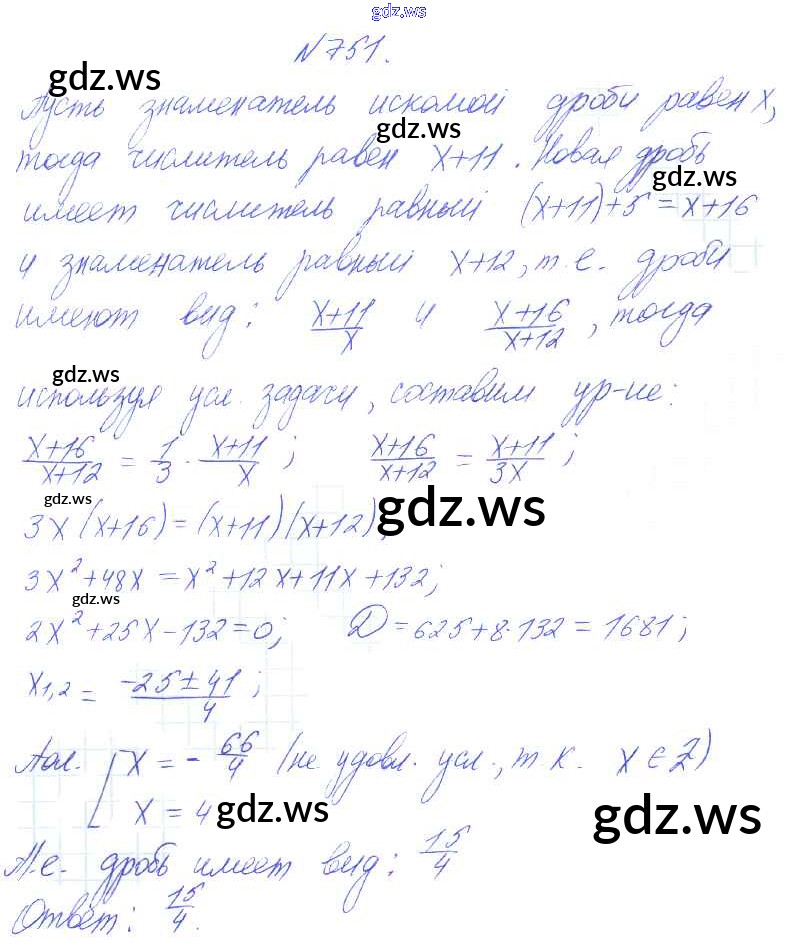 gdz.ws
N 751.
gdz.ws
Пусть знаменатель искомой дроби равен x,
gdz.ws
тогда числитель равен x+11. Новая дробь
gdz.ws
имеет числитель равный (x+11)+5=x+16
и знаменатель равный x+12, т.е. дроби
имеют вид: (x+11)/x и (x+16)/(x+12), тогда
gdz.ws
используя усл. задачи, составим ур-ие:
(x+16)/(x+12) = 1/3 · (x+11)/x; (x+16)/(x+12) = (x+11)/3x;
gdz.ws gdz.ws
3x(x+16)=(x+11)(x+12);
3x²+48x=x²+12x+11x+132;
gdz.ws
2x²+25x-132=0; D=625+8·132=1681;
x1,2 = (-25±41)/4;
Пол. [ x = -66/4 (не удовл. усл., т.к. x∈Z)
x = 4
gdz.ws gdz.ws
Т.е. дробь имеет вид: 15/4
Ответ: 15/4.